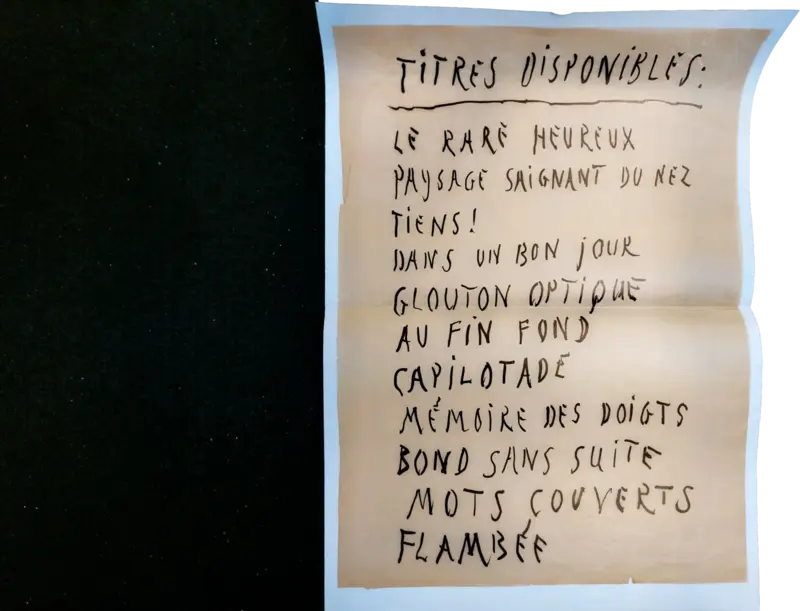 TiTRES DiSPONiBLES:
LE RARE HEUREUX
PAYSAGE SAiGNANT DU NEZ
TiENS!
DANS UN BON jOUR
GLOUTON OPTiQUE
AU FiN FOND
CAPiLOTADE
MÉMOiRE DES DOiGTS
BOND SANS SUiTE
MOTS COUVERTS
FLAMBÉE